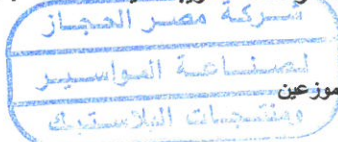 شركة مصر الحجاز
لصناعة المواسير
موزعين
ومنتجات البلاستيك